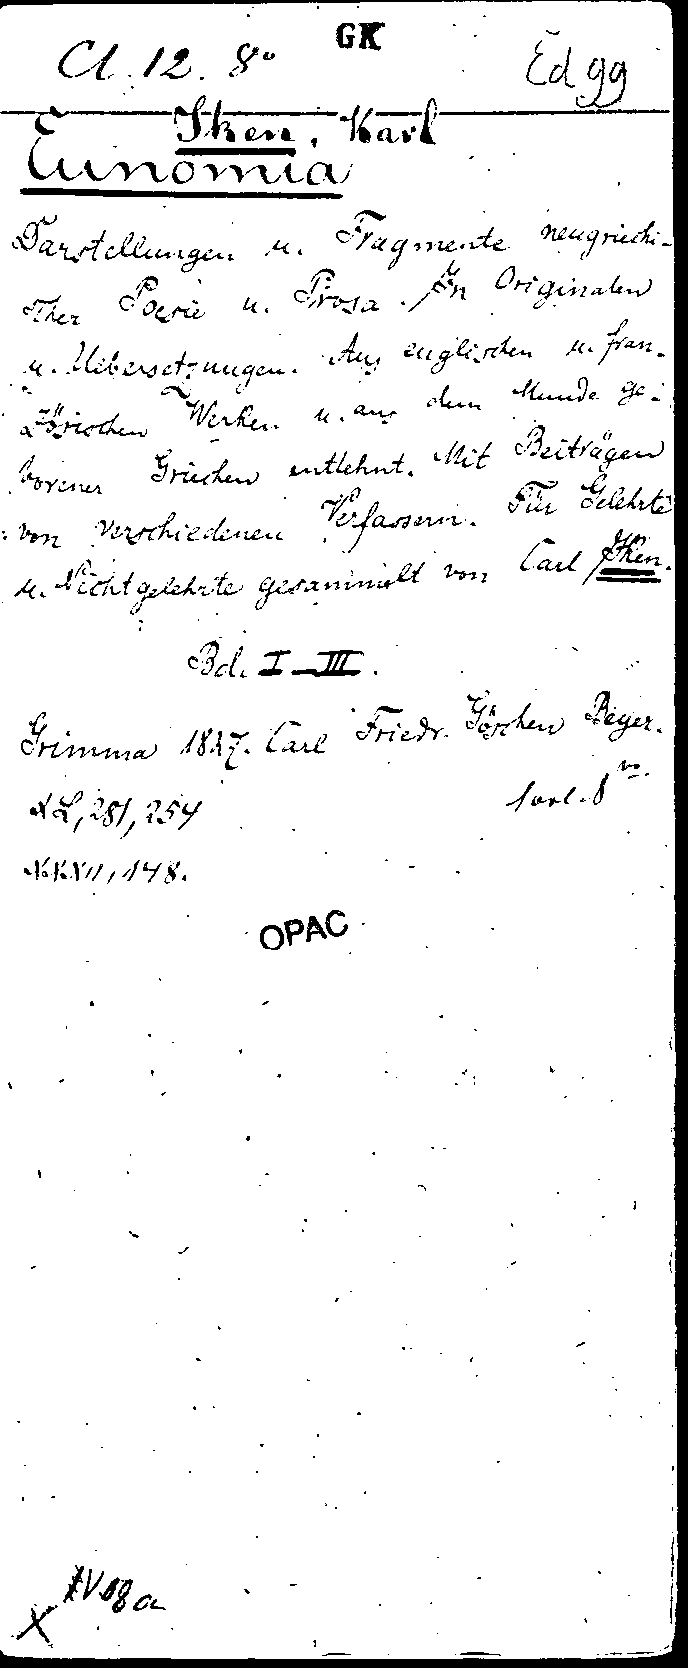 GK
Cl. 12. 8º
Ed gg
Iken, Karl
Eunomia
Darstellungen u. Fragmente neugriechi-
scher Poesie u. Prosa. In Originalen
u. Uebersetzungen. Aus englischen u. fran-
zösischen Werken u. aus dem Munde ge-
borener Griechen entlehnt. Mit Beiträgen
von verschiedenen Verfassern. Für Gelehrte
u. Nichtgelehrte gesammelt von Carl Iken.
Bd. I-III.
Grimma 1827. Carl Friedr. Göschen Beyer.
XL, 281, 254
1 vol. 8vo.
XXXII, 148.
OPAC